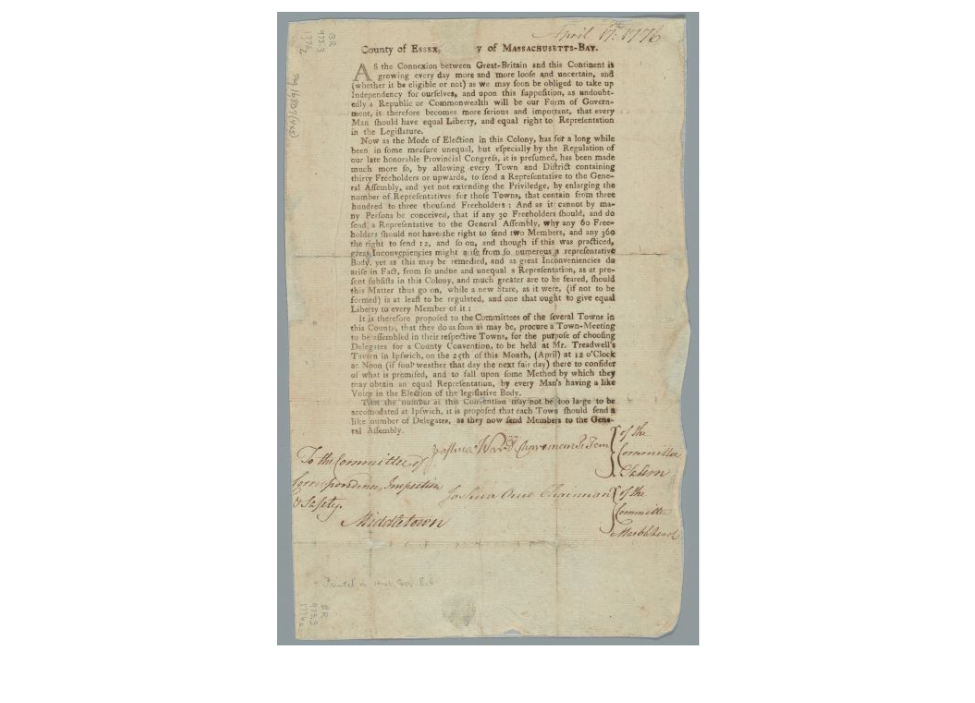 April 17th 1776
County of ESSEX, y of MASSACHUSETTS-BAY.
AS the Connexion between Great-Britain and this Continent is
growing every day more and more loose and uncertain, and
(whether it be eligible or not) as we may soon be obliged to take up
Independency for ourselves, and upon this supposition, as undoubt-
edly a Republic or Commonwealth will be our Form of Govern-
ment, it therefore becomes more serious and important, that every
Man should have equal Liberty, and equal right to Representation
in the Legislature.
Now as the Mode of Election in this Colony, has for a long while
been in some measure unequal, but especially by the Regulation of
our late honorable Provincial Congress, it is presumed, has been made
much more so, by allowing every Town and District containing
thirty Freeholders or upwards, to send a Representative to the Gene-
ral Assembly, and yet not extending the Priviledge, by enlarging the
number of Representatives for those Towns, that contain from three
hundred to three thousand Freeholders : And as it cannot by ma-
ny Persons be conceived, that if any 30 Freeholders should, and do
send a Representative to the General Assembly, why any 60 Free-
holders should not have the right to send two Members, and any 360
the right to send 12, and so on, and though if this was practiced,
great Inconveniencies might arise from so numerous a representative
Body, yet as this may be remedied, and as great Inconveniencies do
arise in Fact, from so undue and unequal a Representation, as at pre-
sent subsists in this Colony, and much greater are to be feared, should
this Matter thus go on, while a new State, as it were, (if not to be
formed) is at least to be regulated, and one that ought to give equal
Liberty to every Member of it :
It is therefore proposed to the Committees of the several Towns in
this County, that they do as soon as may be, procure a Town-Meeting
to be assembled in their respective Towns, for the purpose of choosing
Delegates for a County Convention, to be held at Mr. Treadwell's
Tavern in Ipswich, on the 25th of this Month, (April) at 12 o'Clock
at Noon (if foul weather that day the next fair day) there to consider
of what is premised, and to fall upon some Method by which they
may obtain an equal Representation, by every Man's having a like
Voice in the Election of the legislative Body.
That the number at this Convention may not be too large to be
accomodated at Ipswich, it is proposed that each Town should send a
like number of Delegates, as they now send Members to the Gene-
ral Assembly.
Joshua Ward Chairman P. Tem
of the
Committee
Salem
To the Committee of
Correspondence, Inspection
& Safety.
Middletown
Joshua Orne Chairman
of the
Committee
Marblehead